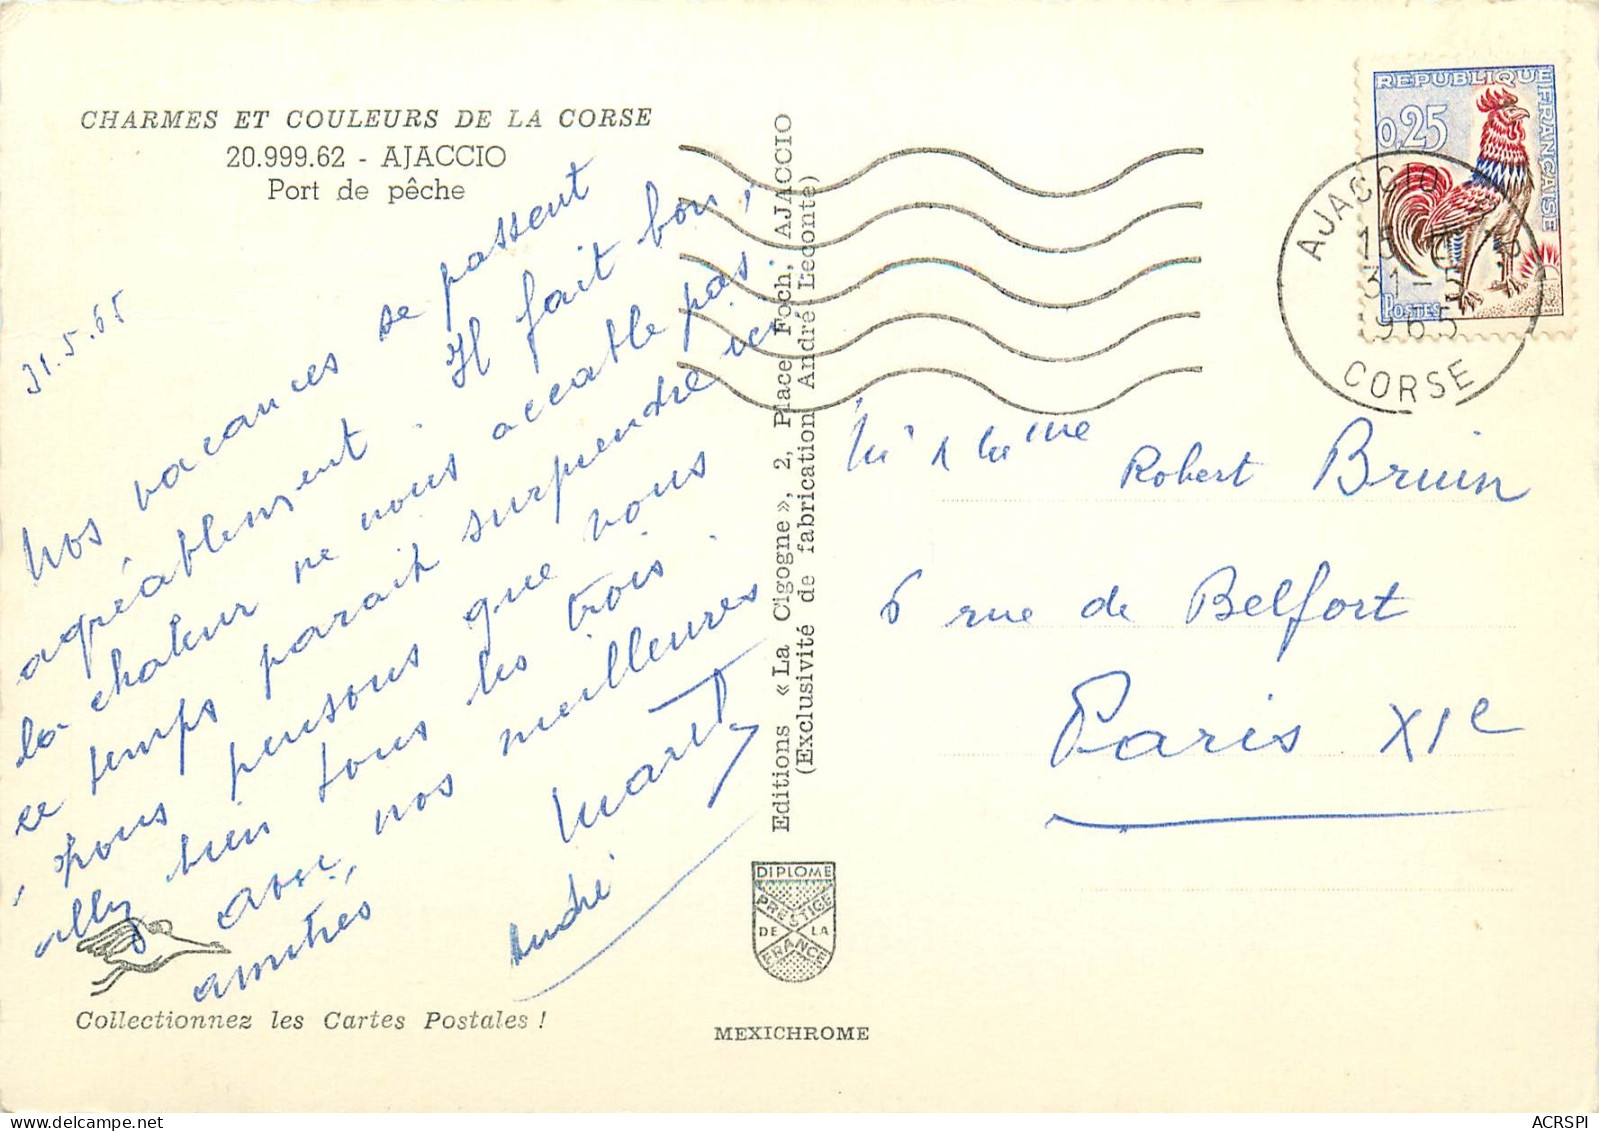 CHARMES ET COULEURS DE LA CORSE
20.999.62 - AJACCIO
Port de pêche
31.5.65
Nos vacances se passent
agréablement. Il fait bon,
la chaleur ne nous accable pas.
ce temps parait surprendre ici.
nous pensons que vous
allez bien tous les trois.
avec nos meilleures
amitiés,
Marty
André
Collectionnez les Cartes Postales !
Editions « La Cigogne », 2, Place Foch, AJACCIO
(Exclusivité de fabrication André Leconte)
DIPLOME
PRESTIGE
DE LA
FRANCE
MEXICHROME
REPUBLIQUE FRANÇAISE
0,25
POSTES
AJACCIO
15 H
31-5
1965
CORSE
Mr & Mme Robert Bruin
6 rue de Belfort
Paris XIe
ACRSPI